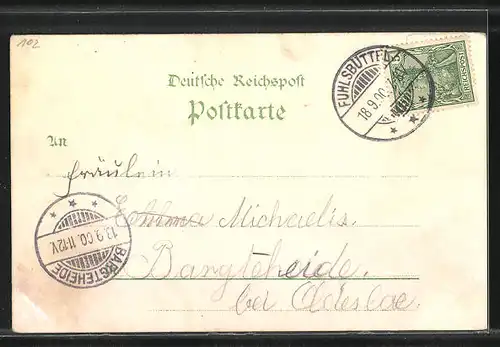 102
Deutsche Reichspost
Postkarte
An
FUHLSBÜTTEL
18.9.00
REICHSPOST
Fräulein
Michaelis.
Bargteheide.
bei Oldesloe.
BARGTEHEIDE
13.9.00. 11-12V.